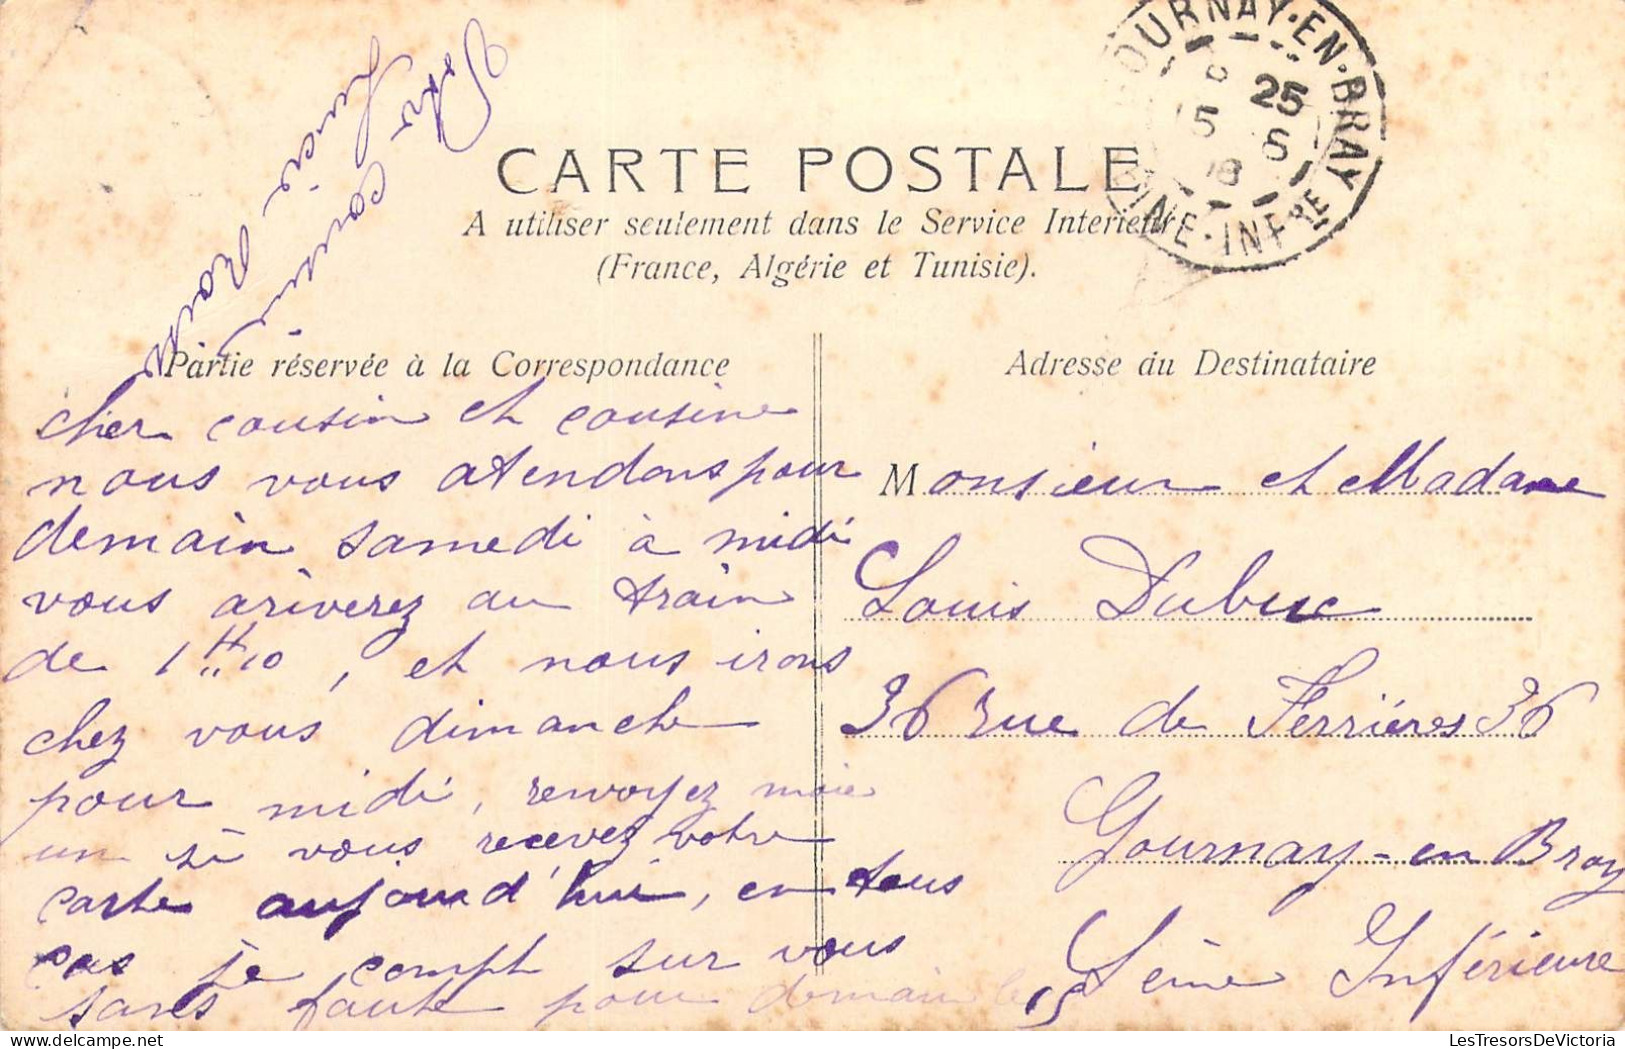 CARTE POSTALE
A utiliser seulement dans le Service Interieur
(France, Algérie et Tunisie).
OURNAY·EN·BRAY
25
15 6
08
INE-INFRE
Partie réservée à la Correspondance
cher cousin et cousine
nous vous atendons pour
demain samedi à midi
vous ariverez au train
de 1H10, et nous irons
chez vous dimanche
pour midi, renvoyez moi
un si vous recevez votre
carte aujourd'hui, en tous
cas je compt sur vous
sans faute pour demain
Votre cousin
Lucie
Adresse du Destinataire
Monsieur et Madame
Louis Dubuc
36 rue de Ferriéres 36
Gournay-en Bray
Seine Inférieure
LesTresorsDeVictoria